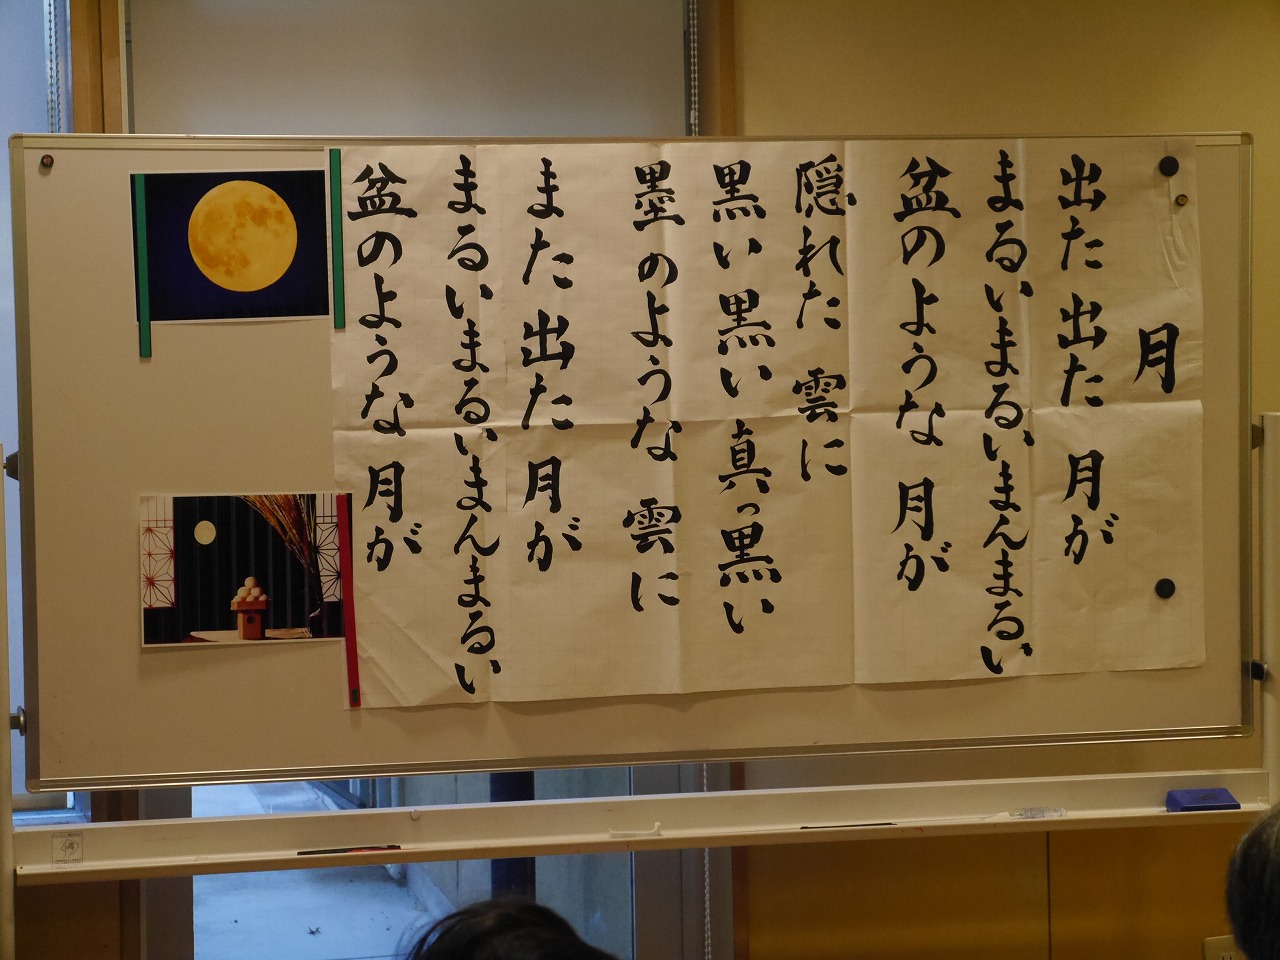 月
出た出た 月が
まるいまるいまんまるい
盆のような 月が
隠れた 雲に
黒い黒い 真っ黒い
墨のような 雲に
また 出た 月が
まるいまるいまんまるい
盆のような 月が